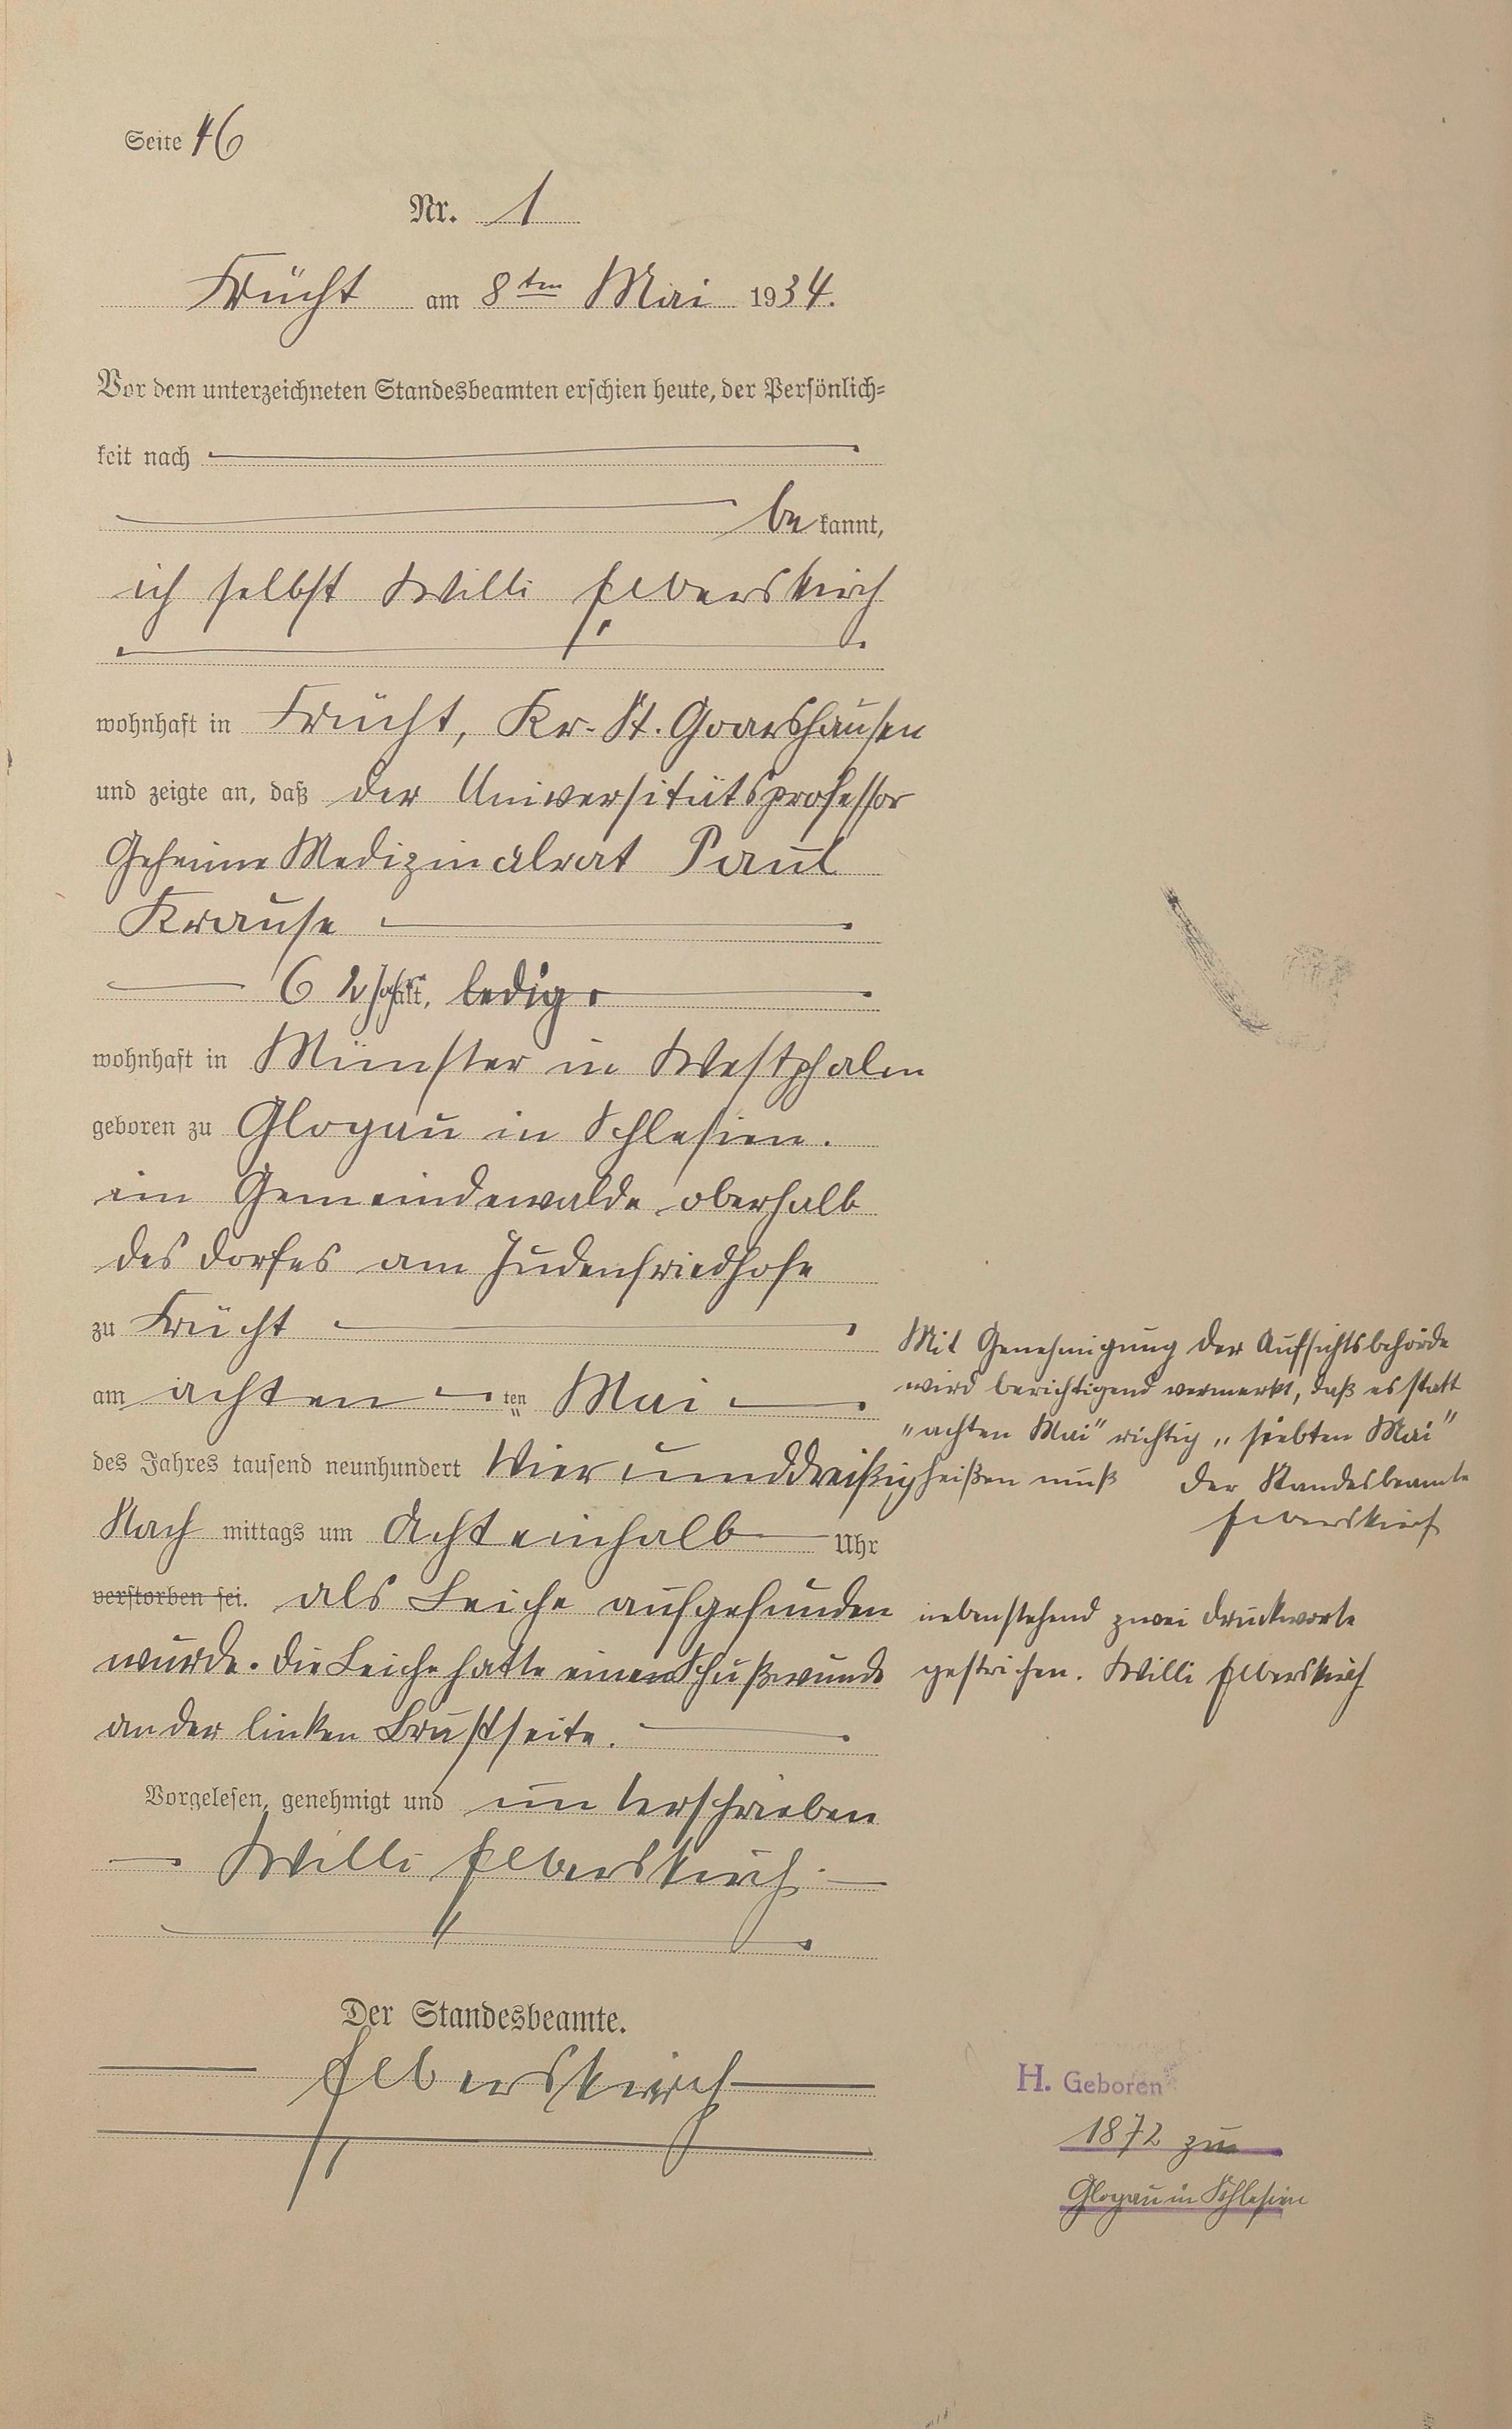 Seite 46
Nr. 1
Frücht am 8ten Mai 1934.
Vor dem unterzeichneten Standesbeamten erschien heute, der Persönlich=
keit nach
be kannt,
ich selbst Willi Elberskirch
wohnhaft in Frücht, Kr. St. Goarshausen
und zeigte an, daß der Universitätsprofessor
Geheime Medizinalrat Paul
Krause
62 Jahre alt, ledig.
wohnhaft in Münster in Westphalen
geboren zu Glogau in Schlesien.
im Gemeindewalde oberhalb
des Dorfes am Judenfriedhofe
zu Frücht
am achten ten Mai
des Jahres tausend neunhundert Vier unddreißig
Nach mittags um Acht einhalb Uhr
verstorben sei. als Leiche aufgefunden
wurde. Die Leiche hatte einen Schußwunde
an der linken Brustseite.
Vorgelesen, genehmigt und unterschrieben
Willi Elberskirch
Der Standesbeamte.
Elberskirch
Mit Genehmigung der Aufsichtsbehörde
wird berichtigend vermerkt, daß es statt
"achten Mai" richtig "siebten Mai"
heißen muß Der Standesbeamte
Elberskirch
nebenstehend zwei Druckworte
gestrichen. Willi Elberskirch
H. Geboren
1872 zu
Glogau in Schlesien